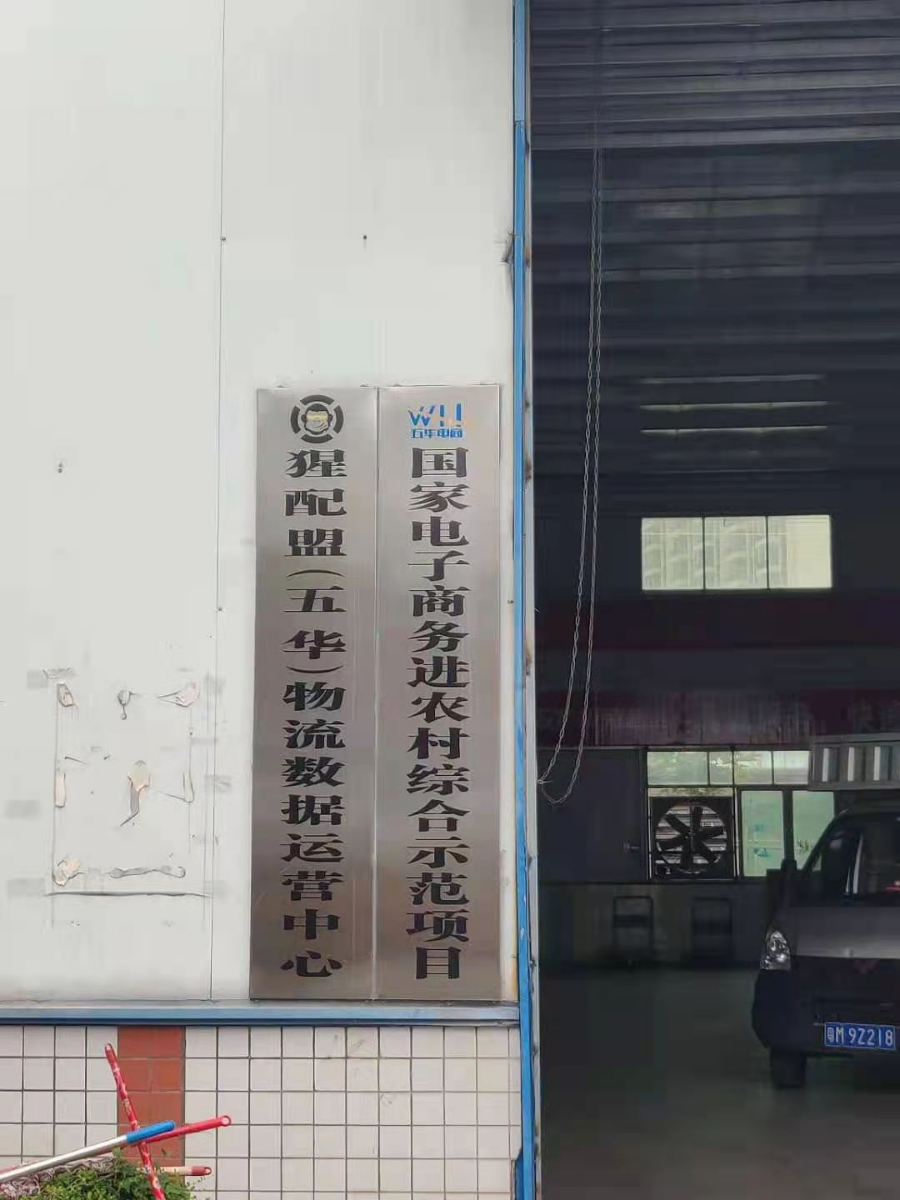 WH
五华电商
国家电子商务进农村综合示范项目
猩配盟（五华）物流数据运营中心
粤M 9Z218